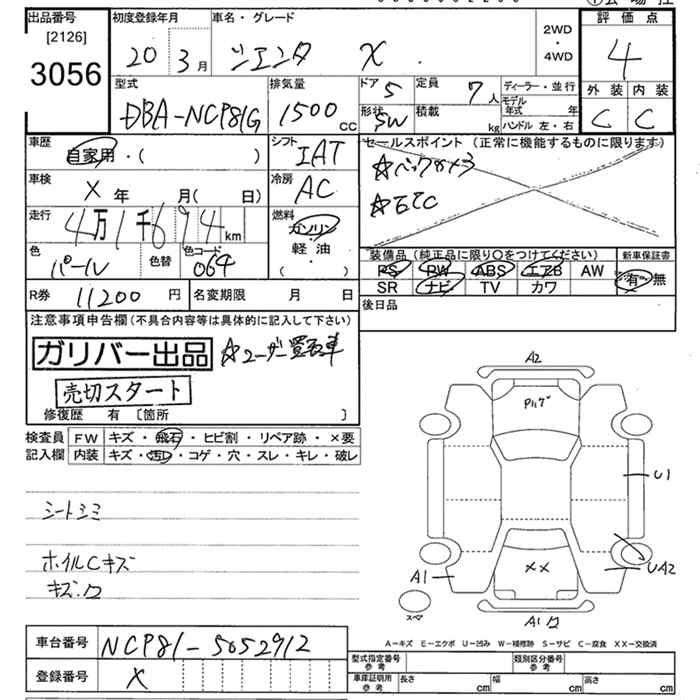 出品番号
[2126]
3056
初度登録年月
20 3月
車名・グレード
シエンタ X
2WD
・
4WD
評価点
4
外装 内装
C C
型式
DBA-NCP81G
排気量
1500 cc
ドア 5
定員 7人
形状 SW
積載 kg
ディーラー・並行
モデル年式 年
ハンドル 左・右
車歴
自家用・( )
シフト
IAT
セールスポイント (正常に機能するものに限ります)
☆バックカメラ
☆ETC
車検
X 年 月( 日)
冷房
AC
走行
4万1千694km
燃料
ガソリン
軽油
( )
色
パール
色替
色コード
064
装備品 (純正品に限り○をつけてください)
PS PW ABS エアB AW
SR ナビ TV カワ
新車保証書
有・無
R券 11200 円
名変期限 月 日
後日品
注意事項申告欄 (不具合内容等は具体的に記入して下さい)
ガリバー出品
☆ユーザー買取車
売切スタート
修復歴 有 〔箇所 〕
検査員記入欄
FW キズ・飛石・ヒビ割・リペア跡・×要
内装 キズ・汚レ・コゲ・穴・スレ・キレ・破レ
シートシミ
ホイルCキズ
キズ.ワ
A2
U1
A1
XX
UA2
スペア
A1
A-キズ E-エクボ U-凹み W-補修跡 S-サビ C-腐食 XX-交換済
車台番号 NCP81-5052912
登録番号 X
型式指定番号参考
類別区分番号参考
車庫証明用参考
長さ cm 幅 cm 高さ cm